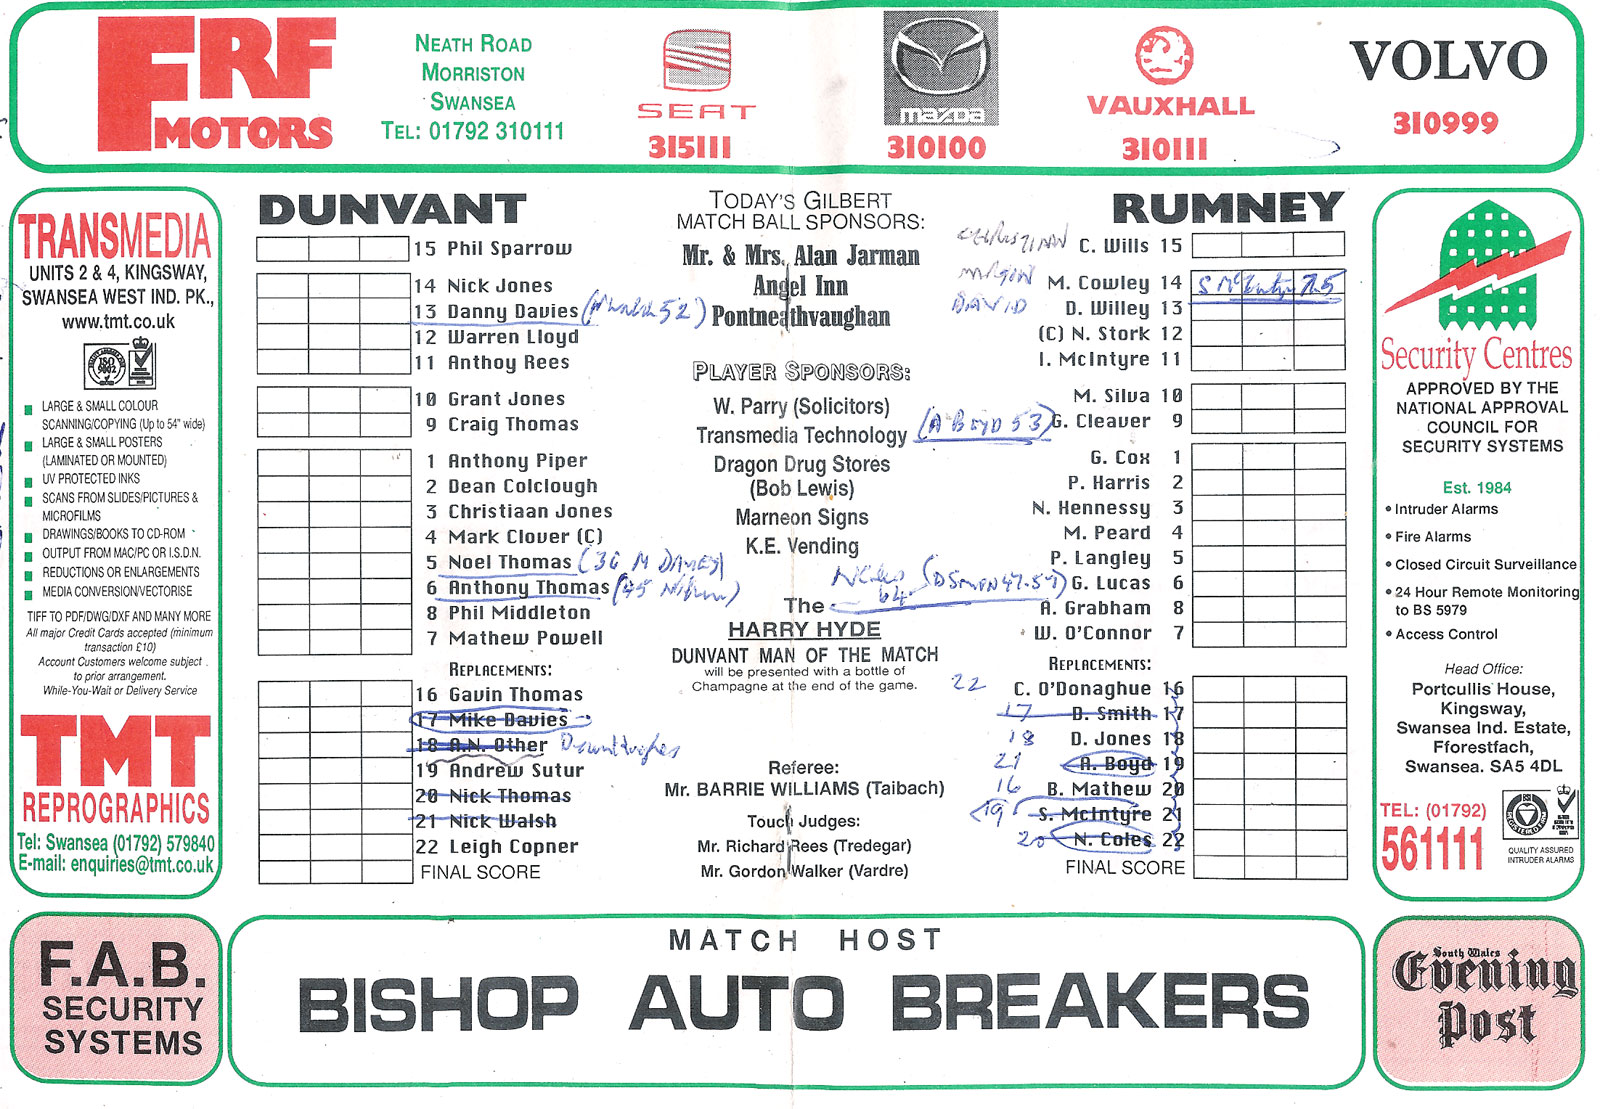 FRF
MOTORS
NEATH ROAD
MORRISTON
SWANSEA
TEL: 01792 310111
SEAT
315111
mazda
310100
VAUXHALL
310111
VOLVO
310999
TRANSMEDIA
UNITS 2 & 4, KINGSWAY,
SWANSEA WEST IND. PK.,
www.tmt.co.uk
ISO
9002
LARGE & SMALL COLOUR
SCANNING/COPYING (Up to 54" wide)
LARGE & SMALL POSTERS
(LAMINATED OR MOUNTED)
UV PROTECTED INKS
SCANS FROM SLIDES/PICTURES &
MICROFILMS
DRAWINGS/BOOKS TO CD-ROM
OUTPUT FROM MAC/PC OR I.S.D.N.
REDUCTIONS OR ENLARGEMENTS
MEDIA CONVERSION/VECTORISE
TIFF TO PDF/DWG/DXF AND MANY MORE
All major Credit Cards accepted (minimum
transaction £10)
Account Customers welcome subject
to prior arrangement.
While-You-Wait or Delivery Service
TMT
REPROGRAPHICS
Tel: Swansea (01792) 579840
E-mail: enquiries@tmt.co.uk
DUNVANT
15 Phil Sparrow
14 Nick Jones
13 Danny Davies (N Walsh 52)
12 Warren Lloyd
11 Anthoy Rees
10 Grant Jones
9 Craig Thomas
1 Anthony Piper
2 Dean Colclough
3 Christiaan Jones
4 Mark Clover (C)
5 Noel Thomas (36 M DAVIES)
6 Anthony Thomas (45
8 Phil Middleton
7 Mathew Powell
REPLACEMENTS:
16 Gavin Thomas
17 Mike Davies
18 A.N. Other Hughes
19 Andrew Sutur
20 Nick Thomas
21 Nick Walsh
22 Leigh Copner
FINAL SCORE
TODAY'S GILBERT
MATCH BALL SPONSORS:
Mr. & Mrs. Alan Jarman
Angel Inn
Pontneathvaughan
PLAYER SPONSORS:
W. Parry (Solicitors)
Transmedia Technology
Dragon Drug Stores
(Bob Lewis)
Marneon Signs
K.E. Vending
The
HARRY HYDE
DUNVANT MAN OF THE MATCH
will be presented with a bottle of
Champagne at the end of the game.
Referee:
Mr. BARRIE WILLIAMS (Taibach)
Touch Judges:
Mr. Richard Rees (Tredegar)
Mr. Gordon Walker (Vardre)
RUMNEY
CHRISTIAN C. Wills 15
M. Cowley 14 S McIntyre 75
DAVID D. Willey 13
(C) N. Stork 12
I. McIntyre 11
M. Silva 10
(A BOYD 53) G. Cleaver 9
G. Cox 1
P. Harris 2
N. Hennessy 3
M. Peard 4
P. Langley 5
N Coles 64 47-57) G. Lucas 6
A. Grabham 8
W. O'Connor 7
REPLACEMENTS:
22 C. O'Donaghue 16
17 D. Smith 17
18 D. Jones 18
21 A. Boyd 19
16 B. Mathew 20
19 S. McIntyre 21
20 N. Coles 22
FINAL SCORE
Security Centres
APPROVED BY THE
NATIONAL APPROVAL
COUNCIL FOR
SECURITY SYSTEMS
Est. 1984
• Intruder Alarms
• Fire Alarms
• Closed Circuit Surveillance
• 24 Hour Remote Monitoring
to BS 5979
• Access Control
Head Office:
Portcullis House,
Kingsway,
Swansea Ind. Estate,
Fforestfach,
Swansea. SA5 4DL
TEL: (01792)
561111
QUALITY ASSURED
INTRUDER ALARMS
F.A.B.
SECURITY
SYSTEMS
MATCH HOST
BISHOP AUTO BREAKERS
South Wales
Evening
Post